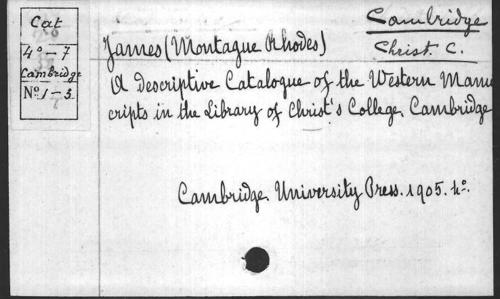 Cat
4º - 7
Cambridge
Nº 1 - 3
Cambridge
Christ. C.
James (Montague Rhodes)
A Descriptive Catalogue of the Western Manus
cripts in the Library of Christ's College, Cambridge
Cambridge University Press. 1905. 4º.